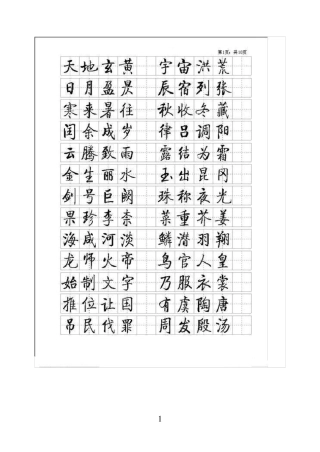 天地玄黄 宇宙洪荒
日月盈昃 辰宿列张
寒来暑往 秋收冬藏
闰余成岁 律吕调阳
云腾致雨 露结为霜
金生丽水 玉出昆冈
剑号巨阙 珠称夜光
果珍李柰 菜重芥姜
海咸河淡 鳞潜羽翔
龙师火帝 鸟官人皇
始制文字 乃服衣裳
推位让国 有虞陶唐
吊民伐罪 周发殷汤
1